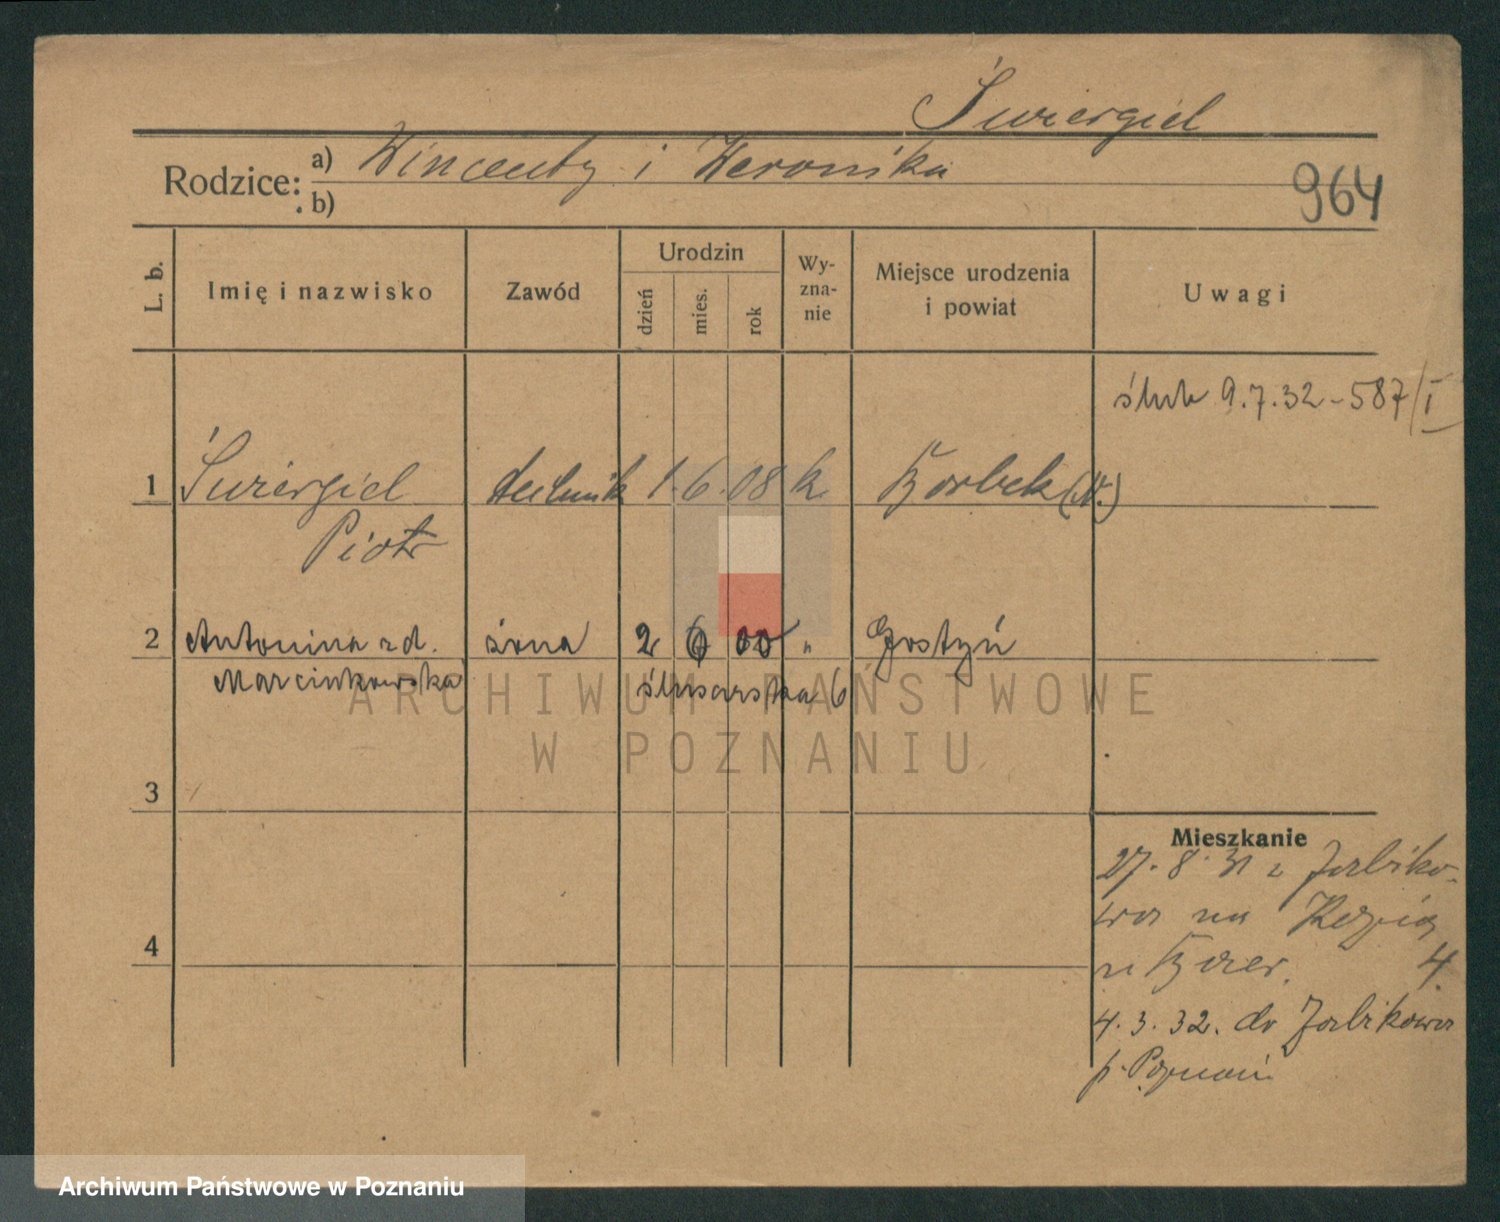 Świergiel
Rodzice: a) Wincenty i Weronika
b)
964
L. b.
Imię i nazwisko
Zawód
Urodzin
dzień
mies.
rok
Wy-
zna-
nie
Miejsce urodzenia
i powiat
Uwagi
ślub 9.7.32 - 587/I
1 Świergiel technik 1. 6. 08 k. Borbek (N.)
Piotr
2 Antonina zd. żona 2 6 00 " Gostyń
Marcinkowska Ślusarska 6
3
4
Mieszkanie
27. 8. 31 z Żabiko-
wa na
4
4. 3. 32. do Żabikowa
p. Poznań
ARCHIWUM PAŃSTWOWE
W POZNANIU
Archiwum Państwowe w Poznaniu